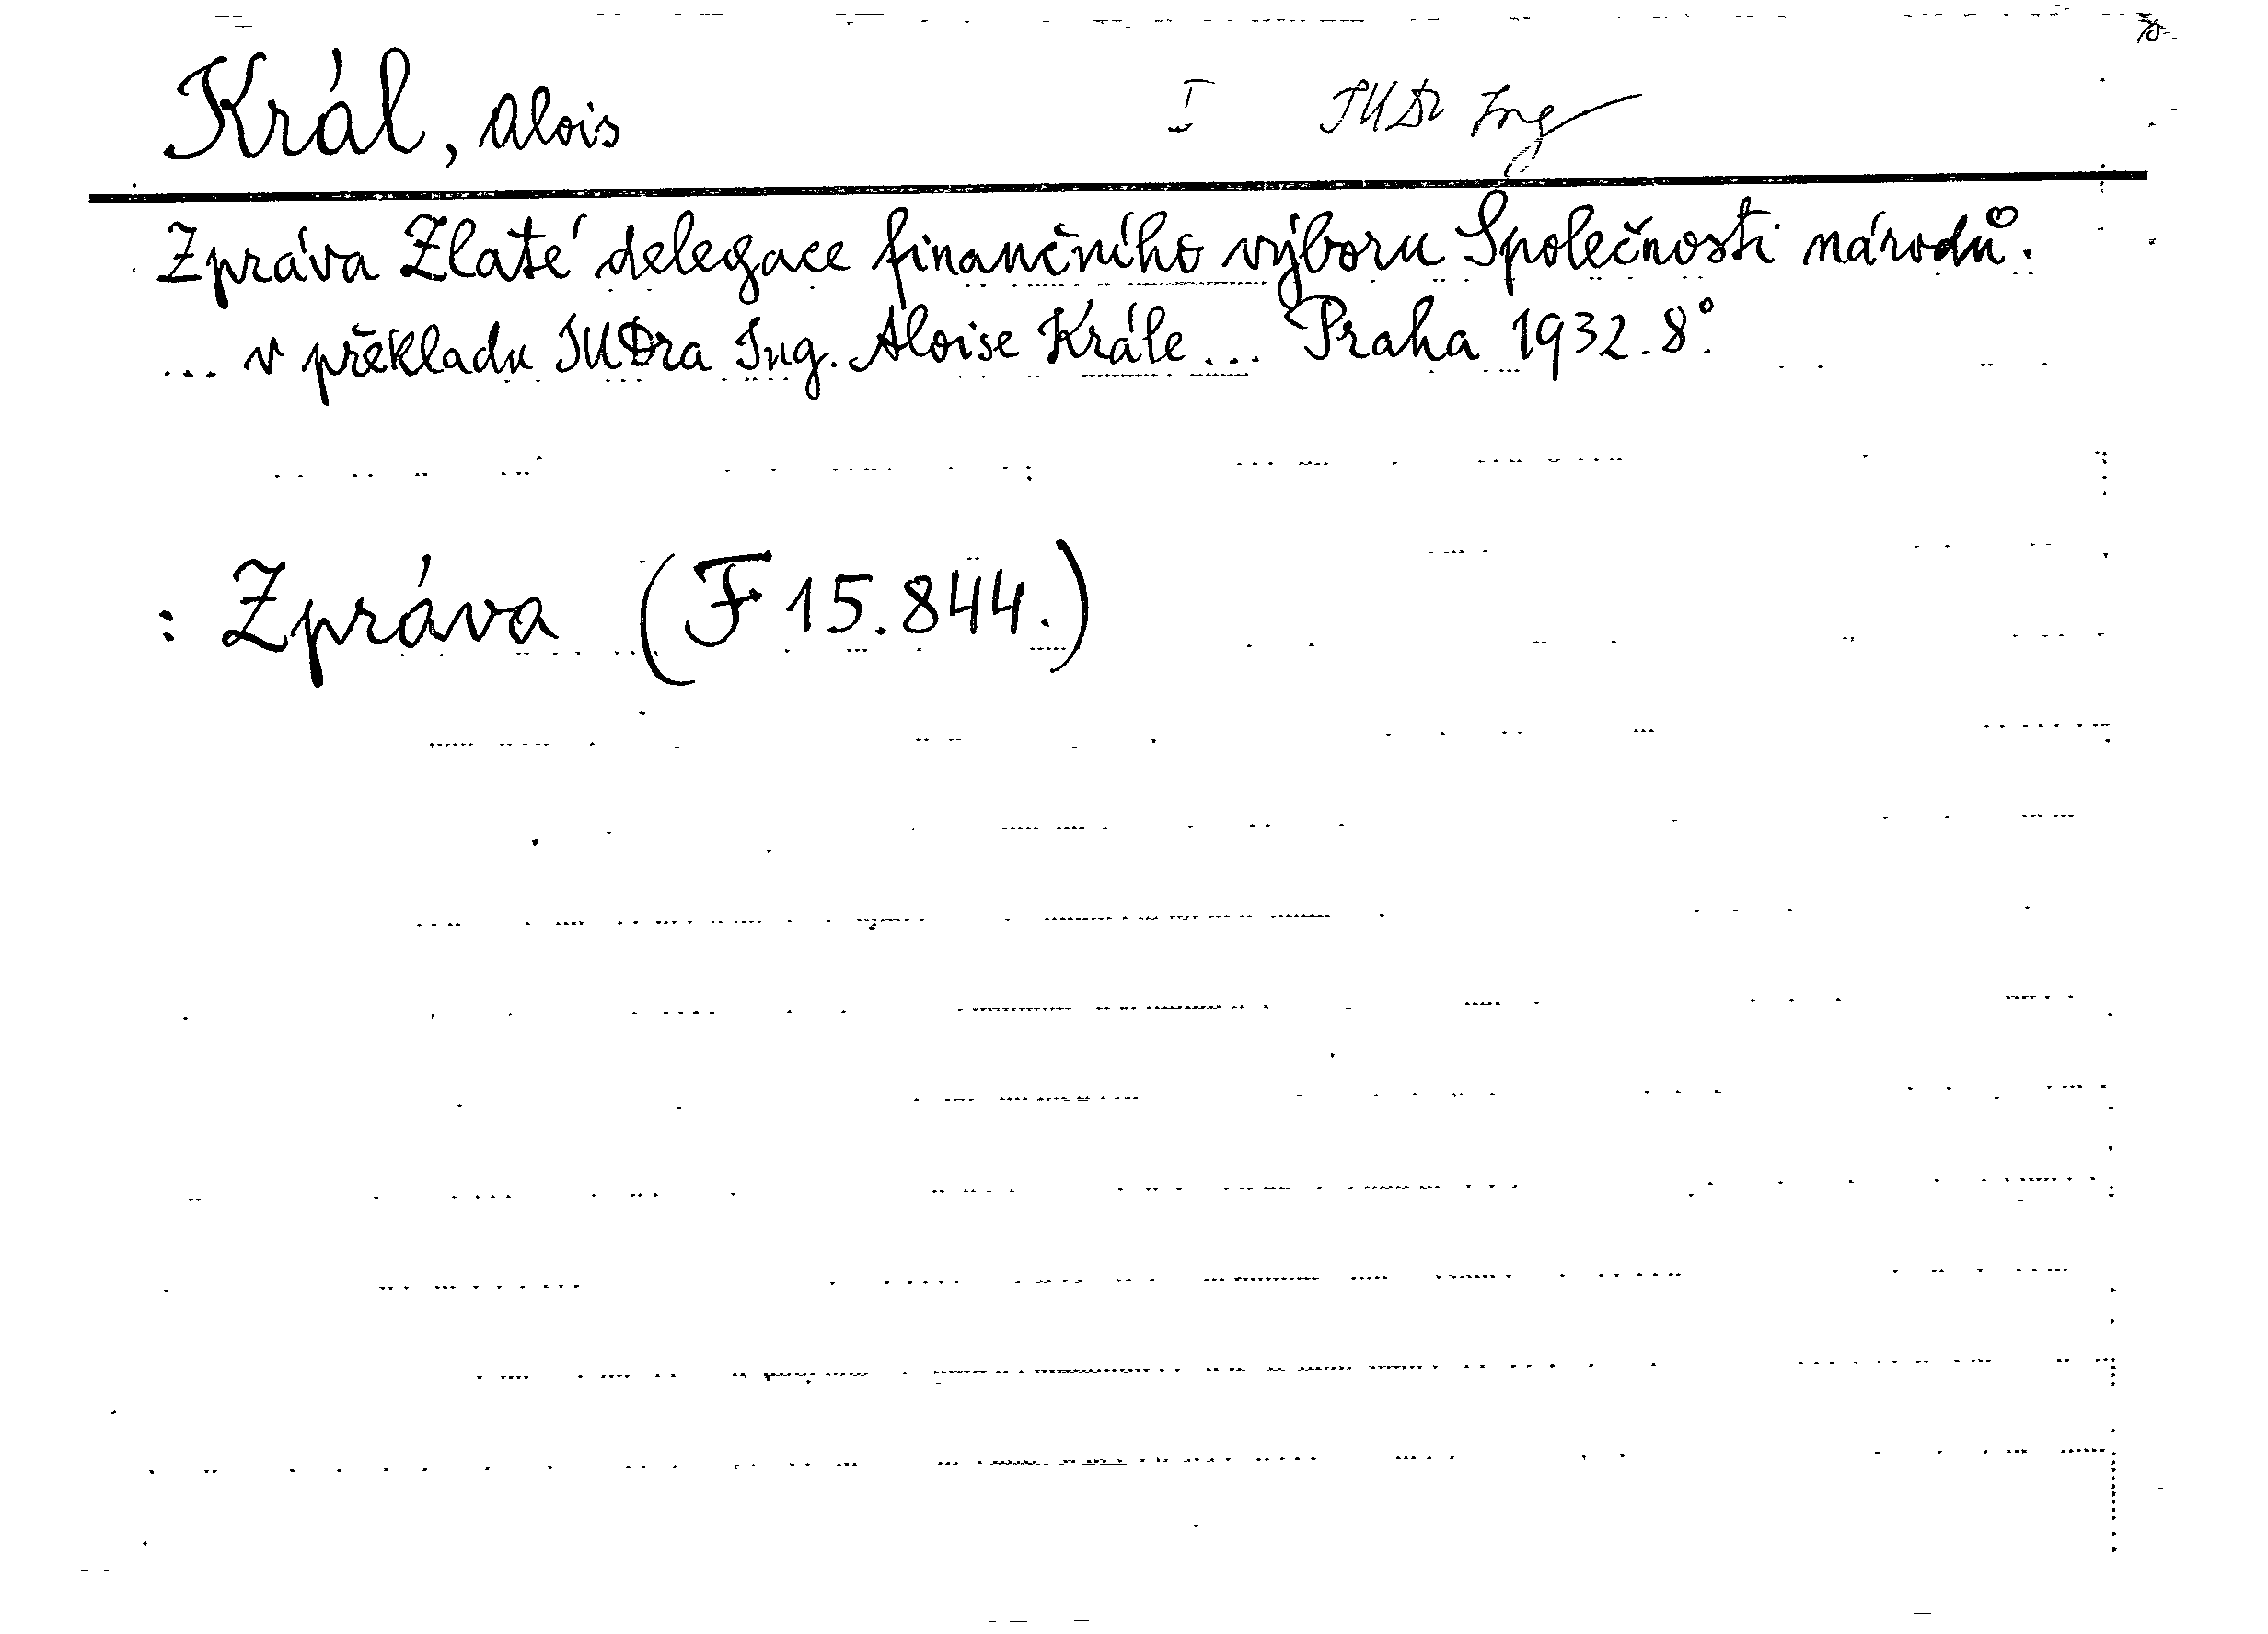 Král, Alois I JUDr Ing
Zpráva Zlaté delegace finančního výboru Společnosti národů.
... v překladu JUDra Ing. Aloise Krále ... Praha 1932. 8°.
: Zpráva (F 15.844.)